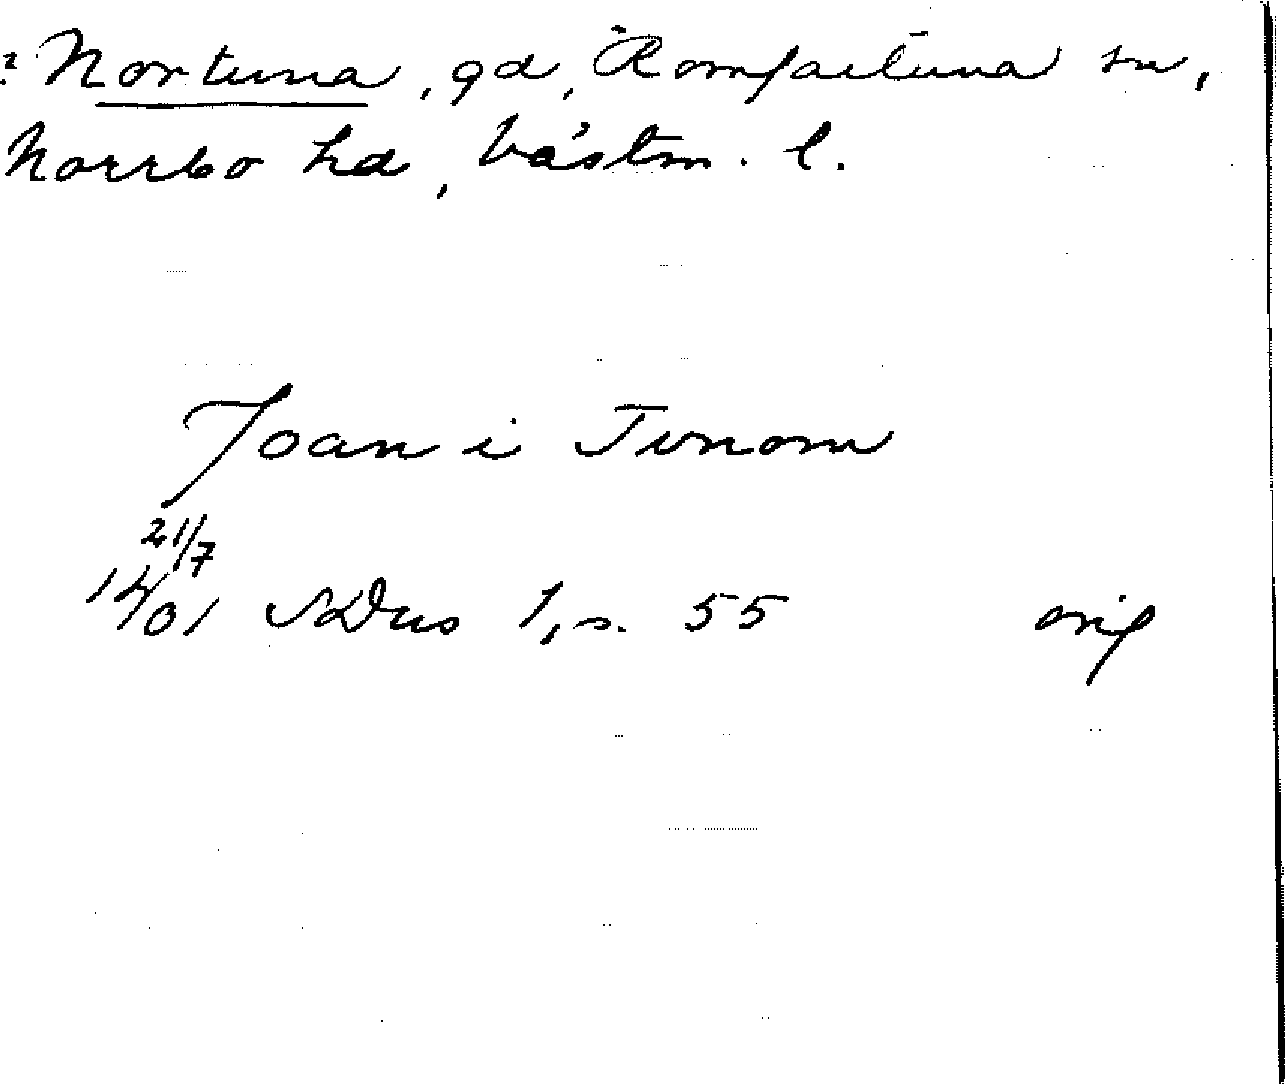 ? Nortuna, gd, Romfartuna sn,
Norrbo hd, Västm. l.
Joan i Tunom
21/7
14/01 SDns 1, s. 55 orig